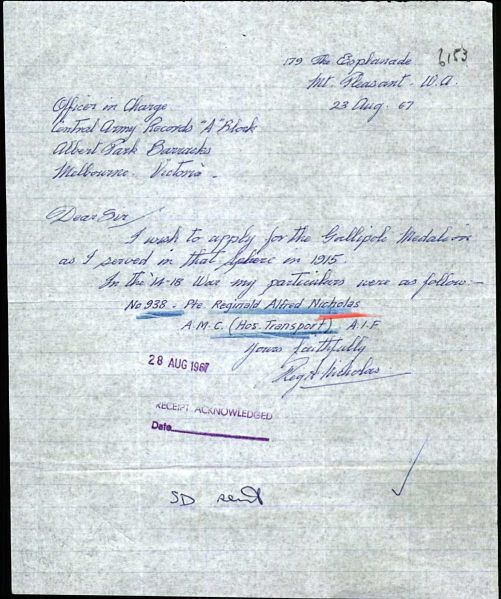 179 The Esplanade
6153
Mt. Pleasant. W.A.
23 Aug. 67
Officer in Charge
Central Army Records "A" Block
Albert Park Barracks
Melbourne. Victoria.
Dear Sir/
I wish to apply for the Gallipoli Medalion
as I served in that Sphere in 1915.
In the '14-18 War my particulars were as follow:-
No 938. Pte. Reginald Alfred Nicholas
A.M.C. (Hos. Transport) A.I.F
Yours faithfully
Reg A Nicholas
28 AUG 1967
RECEIPT ACKNOWLEDGED
Date
SD sent